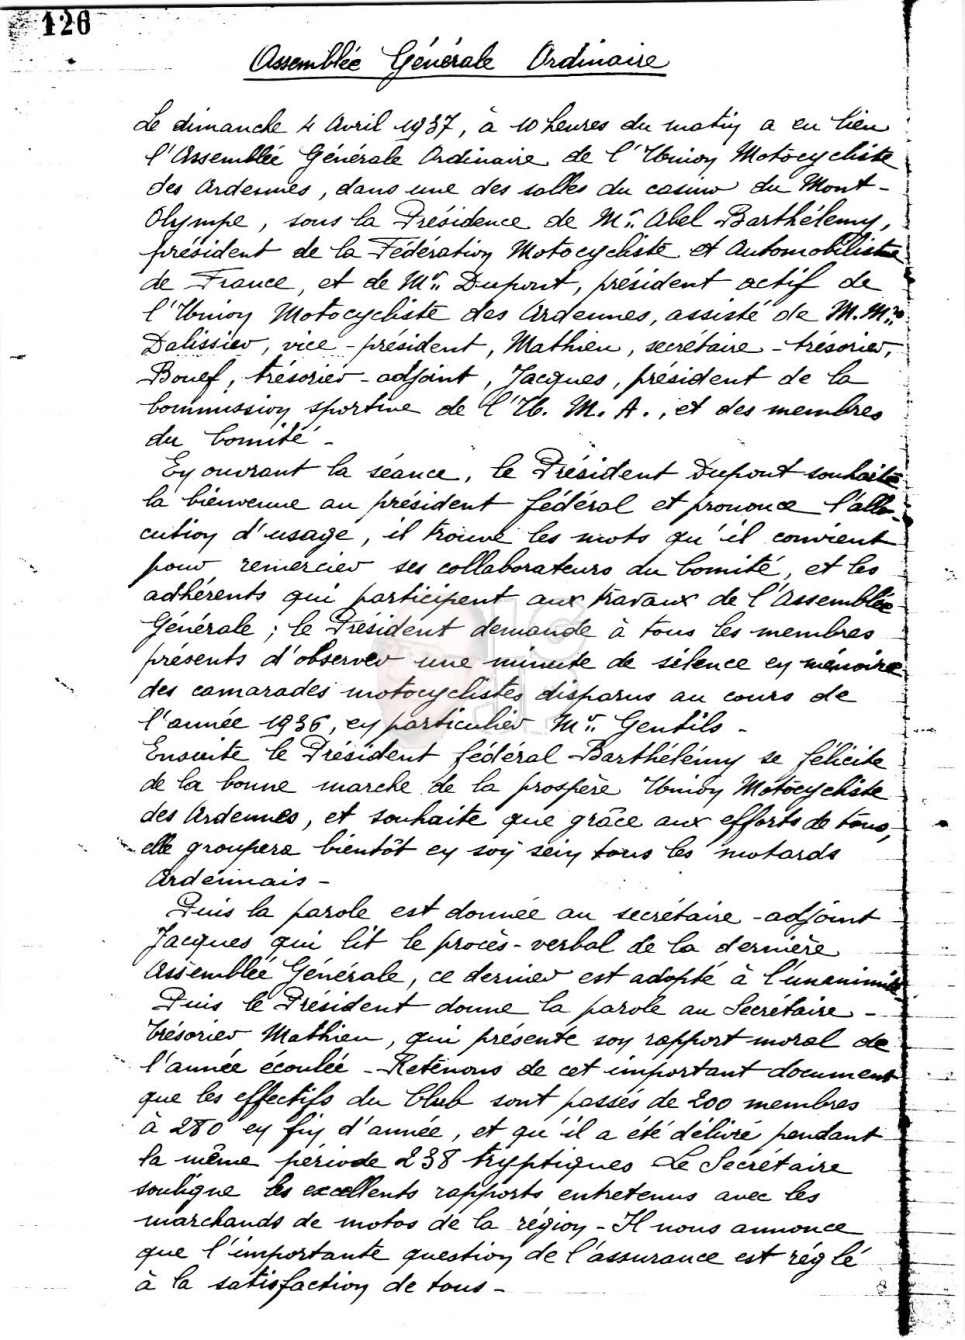 126
Assemblée Générale Ordinaire
Le dimanche 4 Avril 1937, à 10 heures du matin a eu lieu
l'Assemblée Générale Ordinaire de l'Union Motocycliste
des Ardennes, dans une des salles du casino du Mont-
Olympe, sous la Présidence de Mr. Abel Barthélemy,
président de la Fédération Motocycliste et Automobiliste
de France, et de Mr. Dupont, président actif de
l'Union Motocycliste des Ardennes, assisté de M.Mrs
Dalissier, vice-président, Mathieu, secrétaire-trésorier,
Bouef, trésorier-adjoint, Jacques, président de la
Commission sportive de l'U. M. A., et des membres
du Comité -
En ouvrant la séance, le Président Dupont souhaite
la bienvenue au président fédéral et prononce l'allo-
cution d'usage, il trouve les mots qu'il convient
pour remercier ses collaborateurs du Comité, et les
adhérents qui participent aux travaux de l'Assemblée
Générale ; le Président demande à tous les membres
présents d'observer une minute de silence en mémoire
des camarades motocyclistes disparus au cours de
l'année 1936, en particulier Mr. Gentils -
Ensuite le Président fédéral Barthélémy se félicite
de la bonne marche de la prospère Union Motocycliste
des Ardennes, et souhaite que grâce aux efforts de tous,
elle groupera bientôt en son sein tous les motards
Ardennais -
Puis la parole est donnée au secrétaire-adjoint
Jacques qui lit le procès-verbal de la dernière
Assemblée Générale, ce dernier est adopté à l'unanimité
Puis le Président donne la parole au Secrétaire-
trésorier Mathieu, qui présente son rapport moral de
l'année écoulée - Retenons de cet important document
que les effectifs du Club sont passés de 200 membres
à 280 en fin d'année, et qu'il a été délivré pendant
la même période 238 tryptiques Le Secrétaire
souligne les excellents rapports entretenus avec les
marchands de motos de la région - Il nous annonce
que l'importante question de l'assurance est réglé
à la satisfaction de tous -